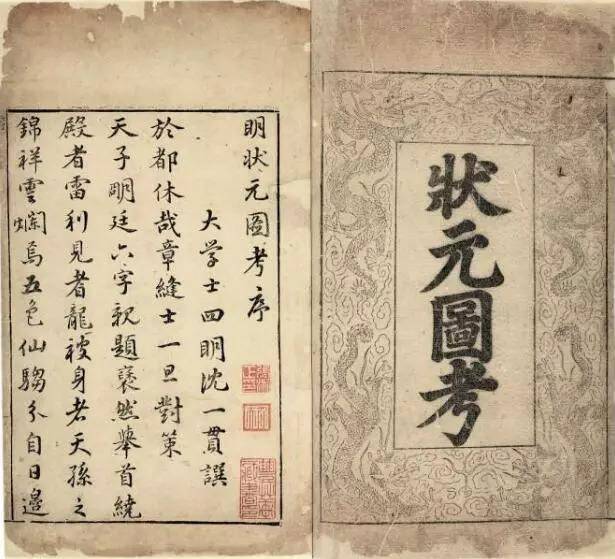 狀元圖考
明状元圖考序
大学士四明沈一貫譔
於都休哉章縫士一旦對策
天子明廷六字親題裒然舉首繞
殿者雷利見者龍被身者天孫之
錦祥雲爛焉五色仙騶分自日邊